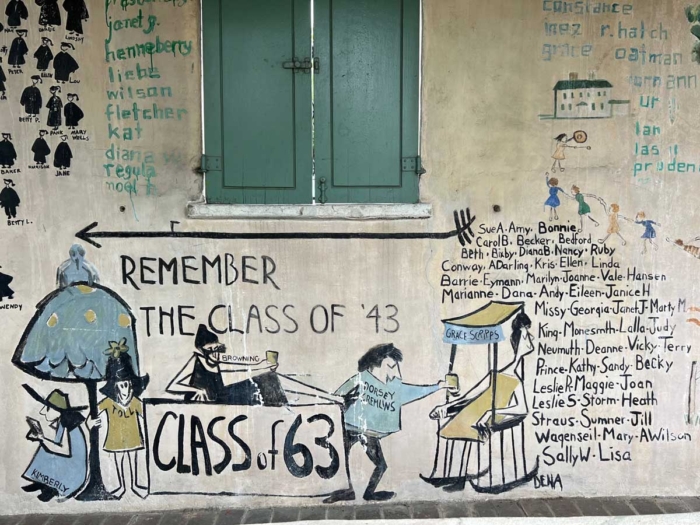 janet g.
henneberry
liebe
wilson
fletcher
kat
diana
regula
noel t.
PETER
LOU
BETTY P.
MARY WELLS
BAKER
JANE
BETTY L.
WENDY
constance
inez r. hatch
grace oatman
ann
ur
ian
las
pruden
REMEMBER
THE CLASS OF '43
BROWNING
TOLL
KIMBERLY
CLASS of 63
DORSEY
GREMLINS
GRACE SCRIPPS
Sue A. Amy. Bonnie.
Carol B. Becker. Bedford
Beth. Bixby. Diana B. Nancy. Ruby
Conway. A Darling. Kris. Ellen. Linda
Barrie. Eymann. Marilyn. Joanne. Vale. Hansen
Marianne. Dana. Andy. Eileen. Janice H
Missy. Georgia. Janet J. Marty M.
King. Monesmith. Lalla. Judy
Neumuth. Deanne. Vicky. Terry
Prince. Kathy. Sandy. Becky
Leslie R. Maggie. Joan
Leslie S. Storm. Heath
Straus. Sumner. Jill
Wagenseil. Mary. A Wilson
Sally W. Lisa
DENA